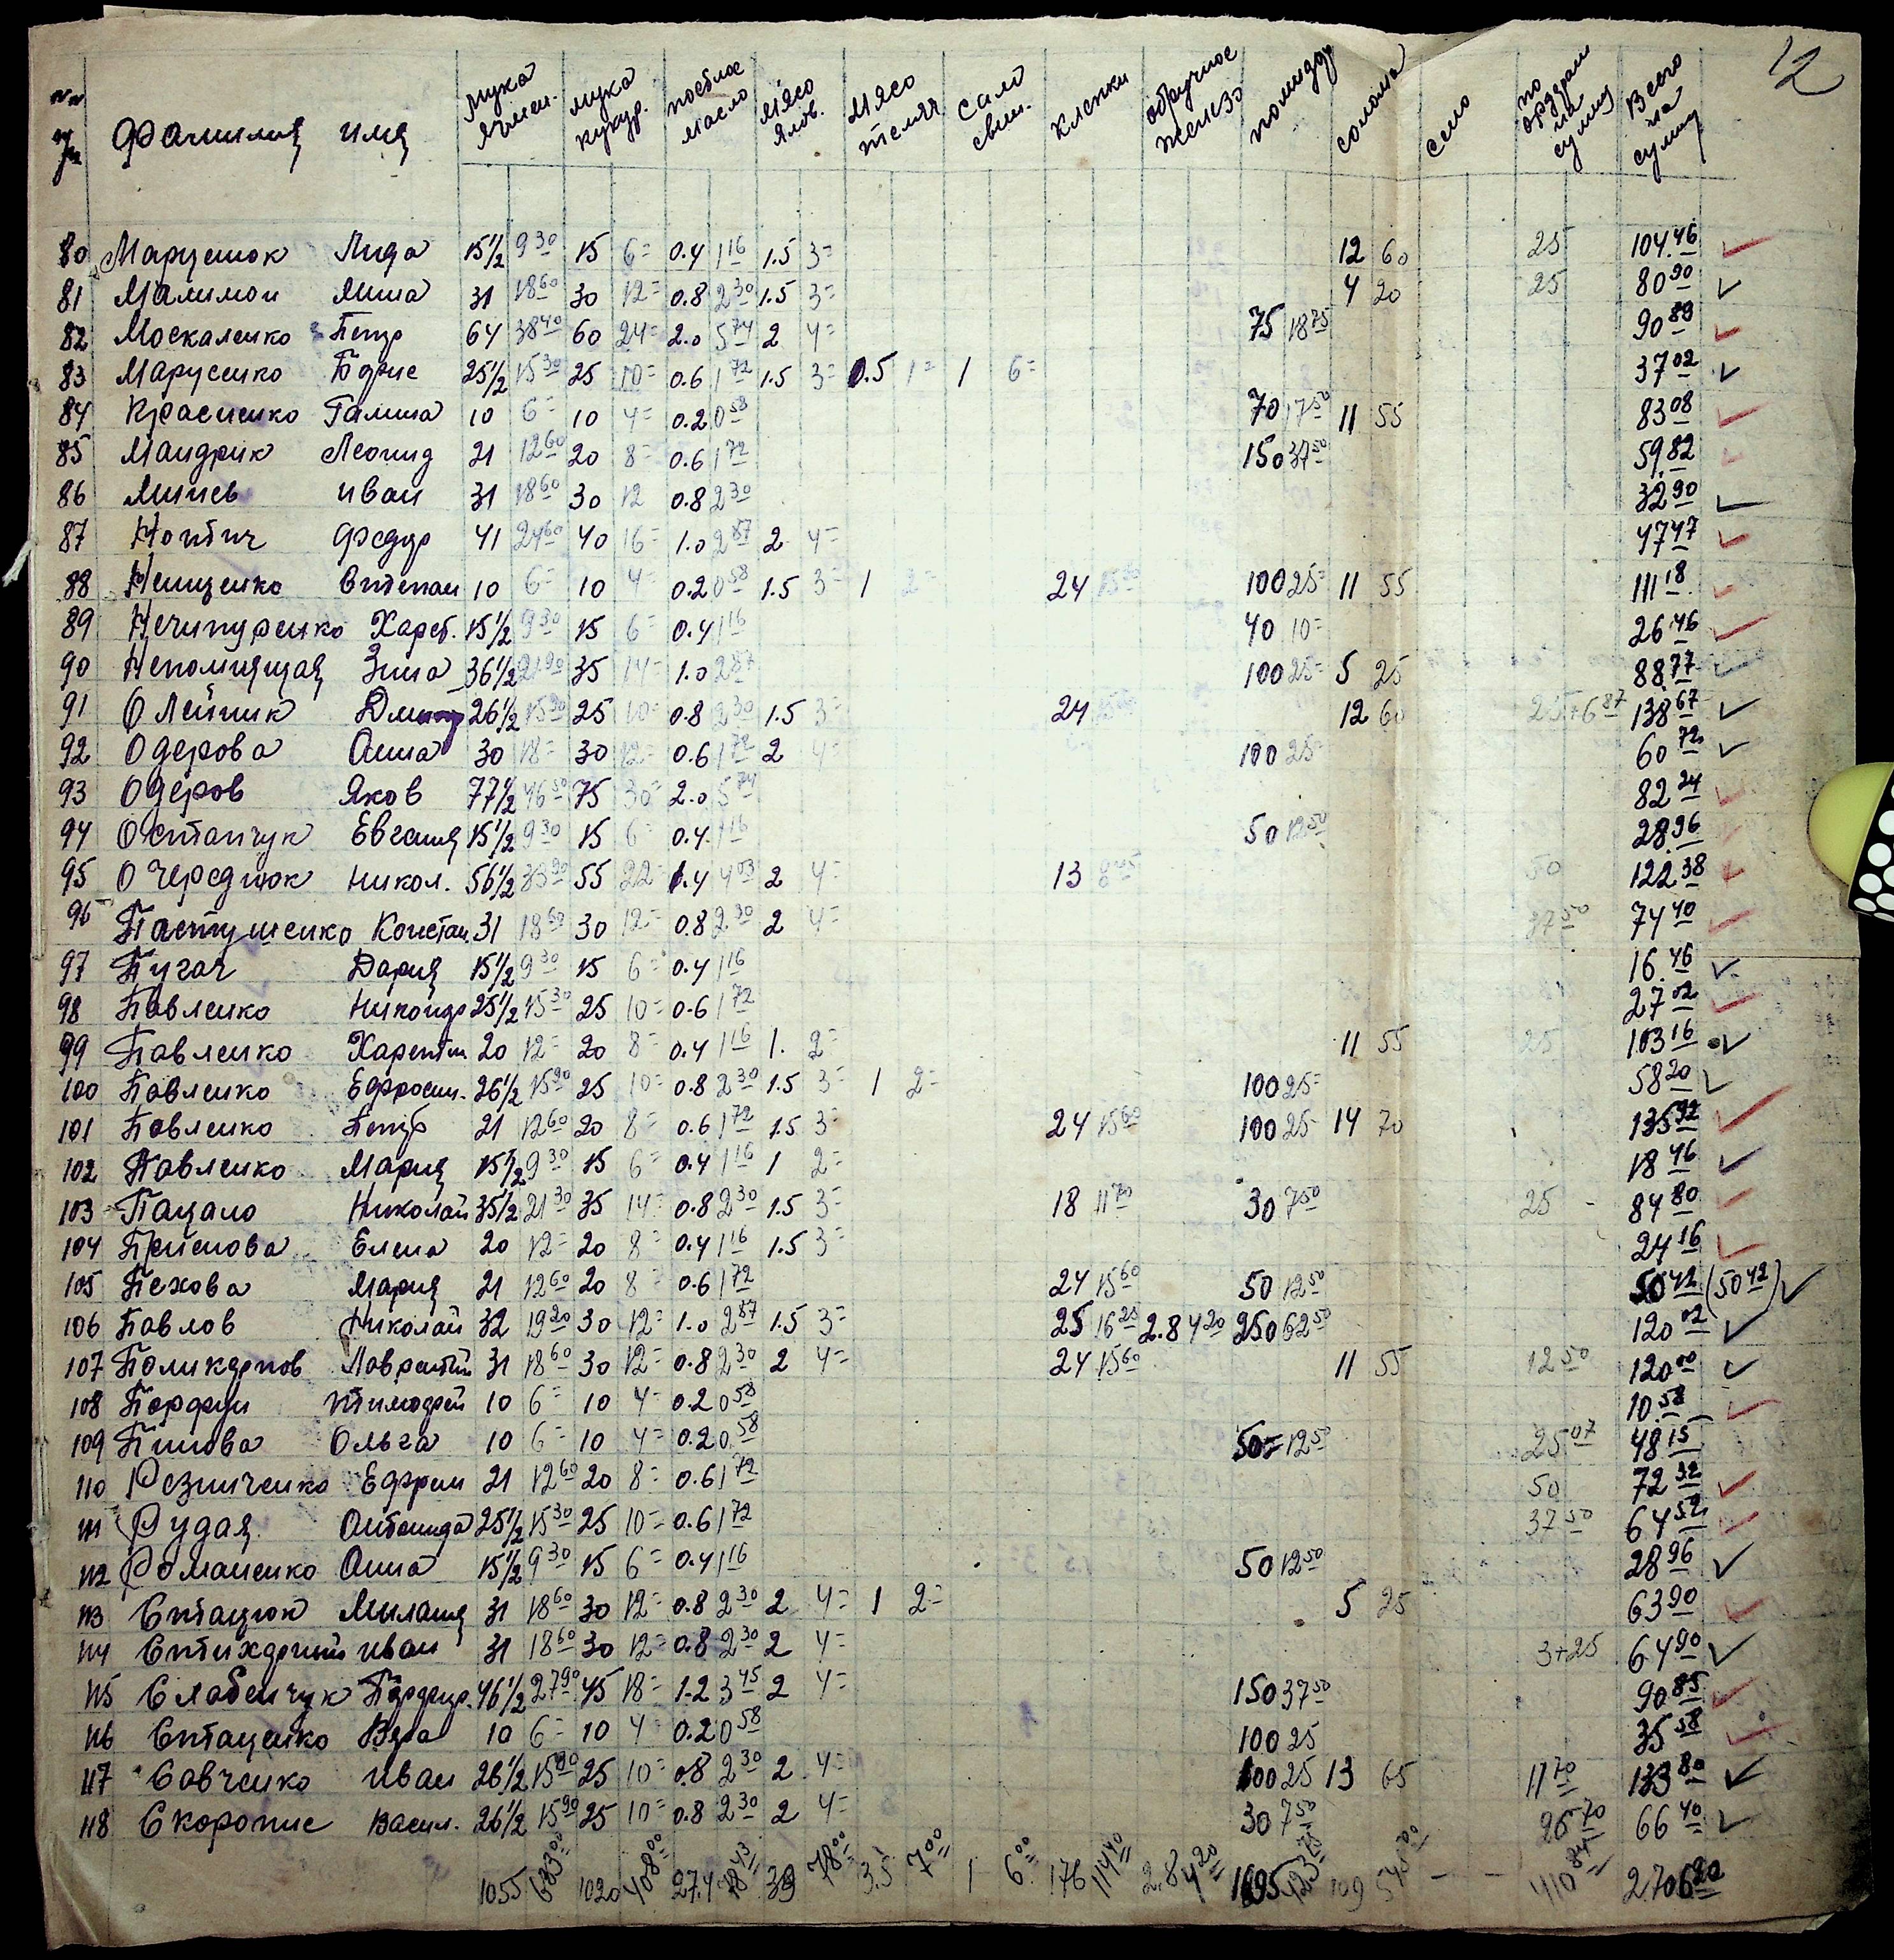 12
№№ п/п Фамилия имя мука ячмен. мука кукур. постное масло мясо ялов. мясо телят сало свин. клепки обручное железо помидор солома сено по ордерам на сумму Всего на сумму
80 Марущак Лида 15½ 9 30 15 6= 0.4 1 16 1.5 3= 12 60 25 104.46
81 Малимон Миша 31 18 60 30 12= 0.8 2 30 1.5 3= 4 20 25 80 90
82 Москаленко Петр 64 38 40 60 24= 2.0 5 74 2 4= 75 18 75 90 89
83 Марусенко Борис 25½ 15 30 25 10= 0.6 1 72 1.5 3= 0.5 1= 1 6= 37 02
84 Красненко Галина 10 6= 10 4= 0.2 0 58 70 17 50 11 55 83 08
85 Мандрик Леонид 21 12 60 20 8= 0.6 1 72 150 37 50 59.82
86 Минев иван 31 18 60 30 12 0.8 2 30 32 90
87 Федор 41 24 60 40 16= 1.0 2 87 2 4= 47 47
88 Нищенко Степан 10 6= 10 4= 0.2 0 58 1.5 3= 1 2= 24 15 60 100 25= 11 55 111 18
89 Нечипуренко Харет. 15½ 9 30 15 6= 0.4 1 16 40 10= 26.46
90 Непомнящая Зина 36½ 21 90 35 14= 1.0 2 87 100 25= 5 25 88 77
91 Олейник 26½ 15 90 25 10= 0.8 2 30 1.5 3= 24 15 60 12 60 25+6 87 138 67
92 Одерова Анна 30 18= 30 12= 0.6 1 72 2 4= 100 25= 60 72
93 Одеров Яков 77½ 46 50 75 30= 2.0 5 74 82 24
94 Остапчук Евгения 15½ 9 30 15 6= 0.4 1 16 50 12 50 28.96
95 Очереднюк Никол. 56½ 33 90 55 22= 1.4 4 03 2 4= 13 8 45 50 122.38
96 Пастушенко Констан. 31 18 60 30 12= 0.8 2 30 2 4= 37 50 74 40
97 Пугач Дария 15½ 9 30 15 6= 0.4 1 16 16.46
98 Павленко Никонор 25½ 15 30 25 10= 0.6 1 72 27 02
99 Павленко Харетин 20 12= 20 8= 0.4 1 16 1. 2= 11 55 25 103 16
100 Павленко Ефросин. 26½ 15 90 25 10= 0.8 2 30 1.5 3= 1 2= 100 25= 58 20
101 Павленко Петр 21 12 60 20 8= 0.6 1 72 1.5 3= 24 15 60 100 25= 14 70 135 92
102 Павленко Мария 15½ 9 30 15 6= 0.4 1 16 1 2= 18 46
103 Пацало Николай 35½ 21 30 35 14= 0.8 2 30 1.5 3= 18 11 70 30 7 50 25 - 84 80
104 Елена 20 12= 20 8= 0.4 1 16 1.5 3= 24 16
105 Пехова Мария 21 12 60 20 8= 0.6 1 72 24 15 60 50 12 50 50 42 (50 42)
106 Павлов Николай 32 19 20 30 12= 1.0 2 87 1.5 3= 25 16 25 2.8 4 20 250 62 50 120 02
107 Поликарпов Лаврентий 31 18 60 30 12= 0.8 2 30 2 4= 24 15 60 11 55 12 50 120 00
108 Порфин Тимофей 10 6= 10 4= 0.2 0 58 10.58
109 Панова Ольга 10 6= 10 4= 0.2 0.58 50= 12 50 25 07 48 15
110 Резниченко Ефрем 21 12 60 20 8= 0.6 1 72 50 72 32
111 Рудая Антонида 25½ 15 30 25 10= 0.6 1 72 37 50 64 52
112 Романенко Анна 15½ 9 30 15 6= 0.4 1 16 50 12 50 28 96
113 Стацюк Милания 31 18 60 30 12= 0.8 2 30 2 4= 1 2= 5 25 63 90
114 Стихарный иван 31 18 60 30 12= 0.8 2 30 2 4= 3+25 64 90
115 Слабенчук Порфир. 46½ 27 90 45 18= 1.2 3 45 2 4= 150 37 50 90.85
116 Стаценко Вера 10 6= 10 4= 0.2 0 58 100 25 35 58
117 Савченко иван 26½ 15 90 25 10= 0.8 2 30 2 4= 100 25 13 65 11 70 133 80
118 Скоропис Васил. 26½ 15 90 25 10= 0.8 2 30 2 4= 30 7 50 26 70 66 40
1055 1020 408 00 27.4 78 43 39 78 00 3.5 7 00 1 6 00 176 114 40 2.8 4 20 1695 423 75 109 545 00 - - 410 84 2.706 20